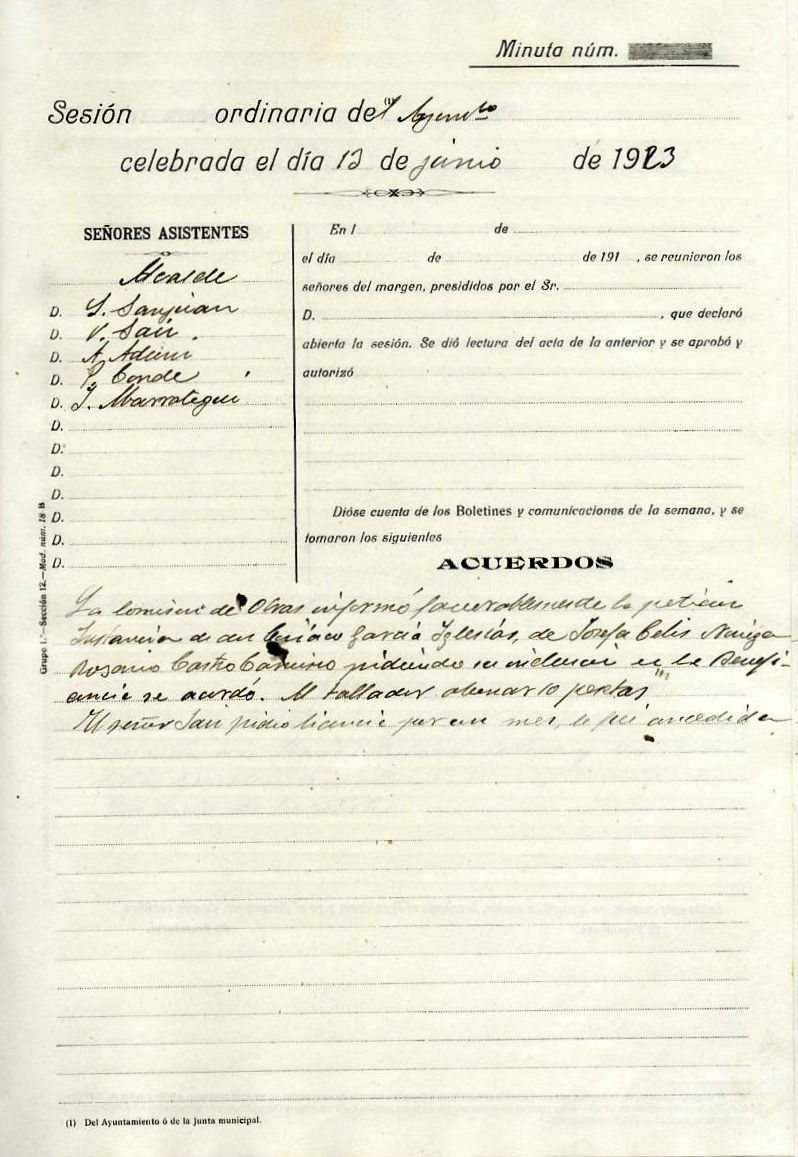 Minuta núm.
Sesión ordinaria de(1)l Ayunto
celebrada el día 13 de junio de 1923
SEÑORES ASISTENTES
Alcalde
D. S. Sanjuan
D. V. Sail
D. A. Adam
D. P. Conde
D. J. Marrategui
D.
D.
D.
D.
D.
D.
D.
En l de
el día de de 191 , se reunieron los
señores del margen, presididos por el Sr.
D. , que declaró
abierta la sesión. Se dió lectura del acta de la anterior y se aprobó y
autorizó
Dióse cuenta de los Boletines y comunicaciones de la semana, y se
tomaron los siguientes
ACUERDOS
La Comision de Obras informó favorablemente la peticion
Instancia de Ciriaco Garcia Iglesias, de Josefa Celis
Rosario Castro Camino pidiendo su inclusion en la Benefi
cencia se acordó. Al tallador abonar 10 pesetas
El señor Sail pidio licencia por un mes, le fué concedida
Grupo 1.º—Sección 12.—Mod. núm. 18 B
(1) Del Ayuntamiento ó de la Junta municipal.